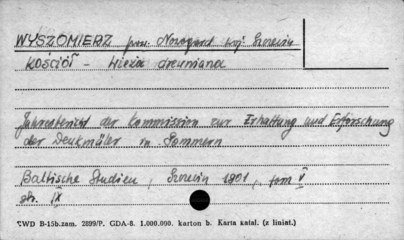 WYSZOMIERZ pow. Nowogard woj. Szczecin
KOŚCIÓŁ - Wieża drewniana
Jahresbericht der Kommission zur Erhaltung und Erforschung
der Denkmäler in Pommern
Baltische Studien, Szczecin 1901, tom V
str. IX
ZWD B-15b.zam. 2899/P. GDA-8. 1.000.000. karton b. Karta katal. (z liniat.)